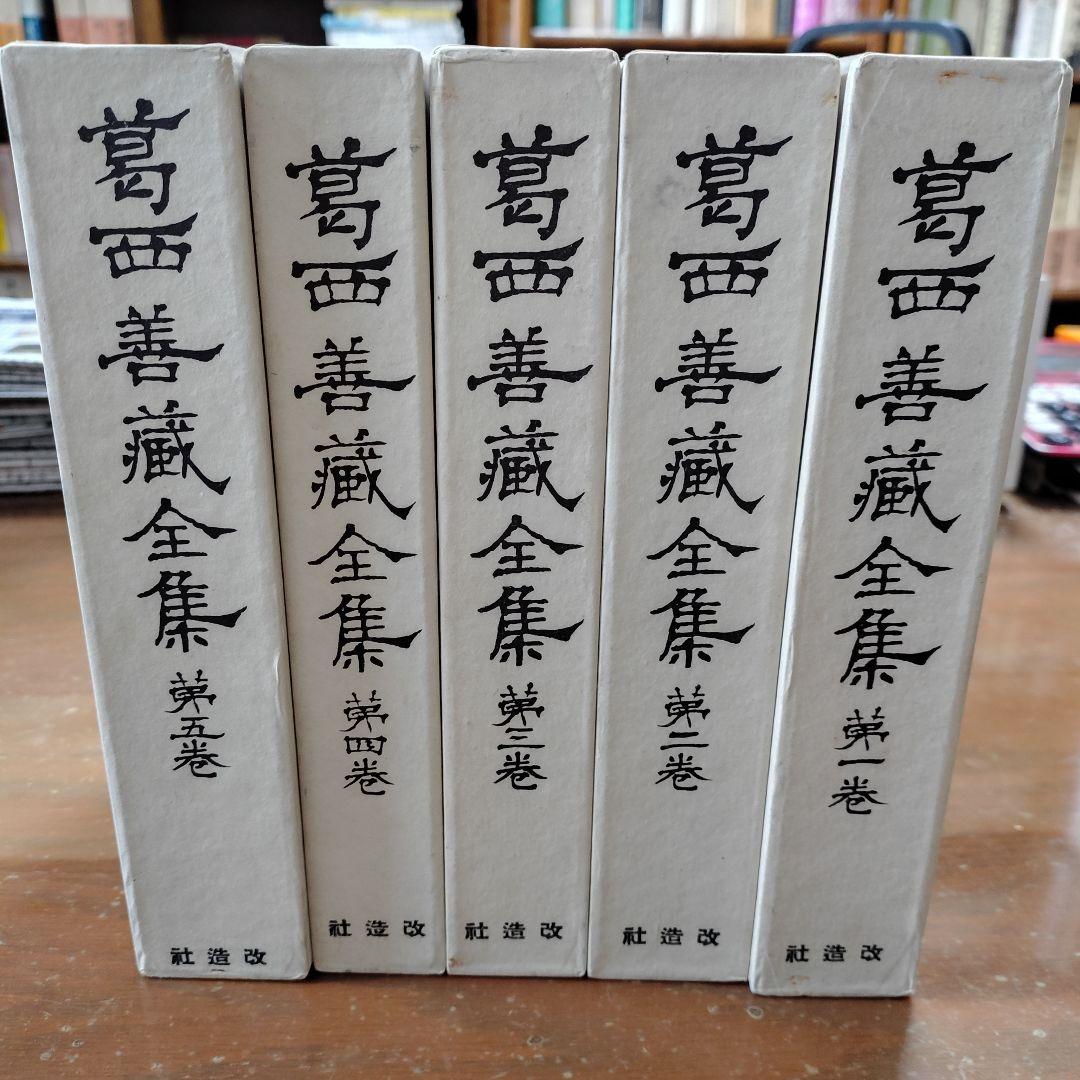 葛西善藏全集 第五卷
社造改
葛西善藏全集 第四卷
社造改
葛西善藏全集 第三卷
社造改
葛西善藏全集 第二卷
社造改
葛西善藏全集 第一卷
社造改